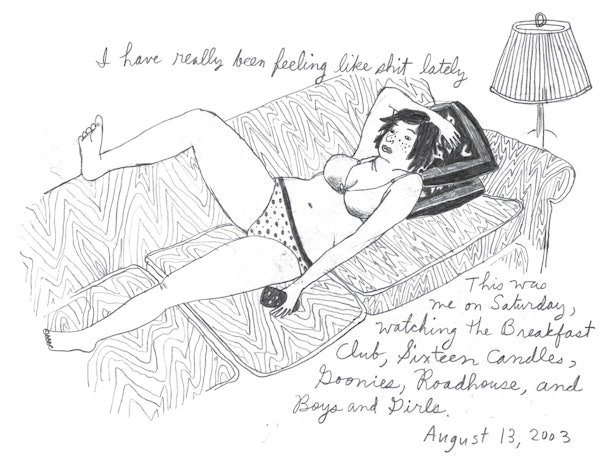 I have really been feeling like shit lately
This was
me on Saturday,
watching the Breakfast
Club, Sixteen Candles,
Goonies, Roadhouse, and
Boys and Girls.
August 13, 2003